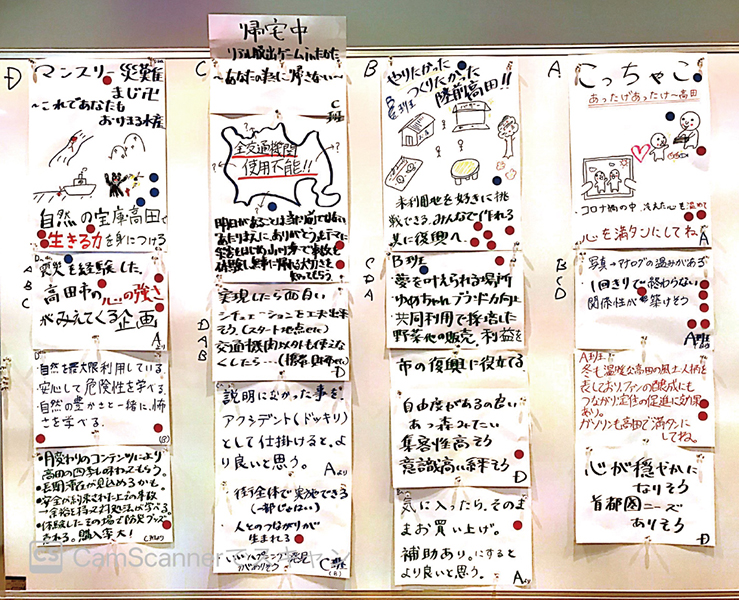 D
マンスリー災難
まじ卍
〜これであなたも
おりまる水産
自然の宝庫高田で
生きる力を身につける
D
A
B
C
災災を経験した、
高田市の心の強さ
がみえてくる企画
Aより
・自然を最大限利用している。
・安心して危険性を学べる。
・自然の豊かさと一緒に、怖
さを学べる。
(B)
・月変わりのコンテンツにより
高田の四季も味わってもらう。
・長期滞在が見込めるかも。
・安全が約束された上での事故
→余裕を持って対処法が学べる
・体験したその場で防災グッズ
売れる。購入率大!
帰宅中
リアル脱出ゲーム
〜あなたの家に帰さない〜
C
C
班
全交通機関
使用不能!!
D
A
B
実現したら面白い
シチュエーションを工夫出来
そう。(スタート地点など)
交通機関以外も使えな
くしたら…
D
説明になかった事を、
アクシデント(ドッキリ)
として仕掛けると、よ
り良いと思う。
Aより
街全体で実施できる
(一部じゃない)
人とのつながりが
生まれる
C班
B
やりたかった
つくりたかった
陸前高田!!
B班
未利用地を好きに挑
戦できる。みんなで作れる
共に復興へ。
C
D
A
B班
・夢を叶えられる場所
ゆめちゃんブランド力向上
・共同利用で採培した
野菜他の販売、利益を
市の復興に役立てる
自由度があるの良い
あっ森みたい
集客性高そう
意識高い絆そう
D
気に入ったら、そのま
まお買い上げ。
補助あり。にすると
より良いと思う。
Aより
A
こっちゃこ
あったげあったけ〜高田
コロナ禍の中、冷えた心を温めて
心を満タンにしてね
A
B
C
D
写真→アナログの温みがある
・1回きりで終わらない
関係性が築けそう
A班
A班
冬も温暖な高田の風土、人柄を
表しており、ファンの醸成にも
つながり定住の促進に効果
あり。
ガソリンも高田で満タンに
してね。
心が穏やかに
なりそう
首都圏ニーズ
ありそう
D
CS CamScannerでスキャン